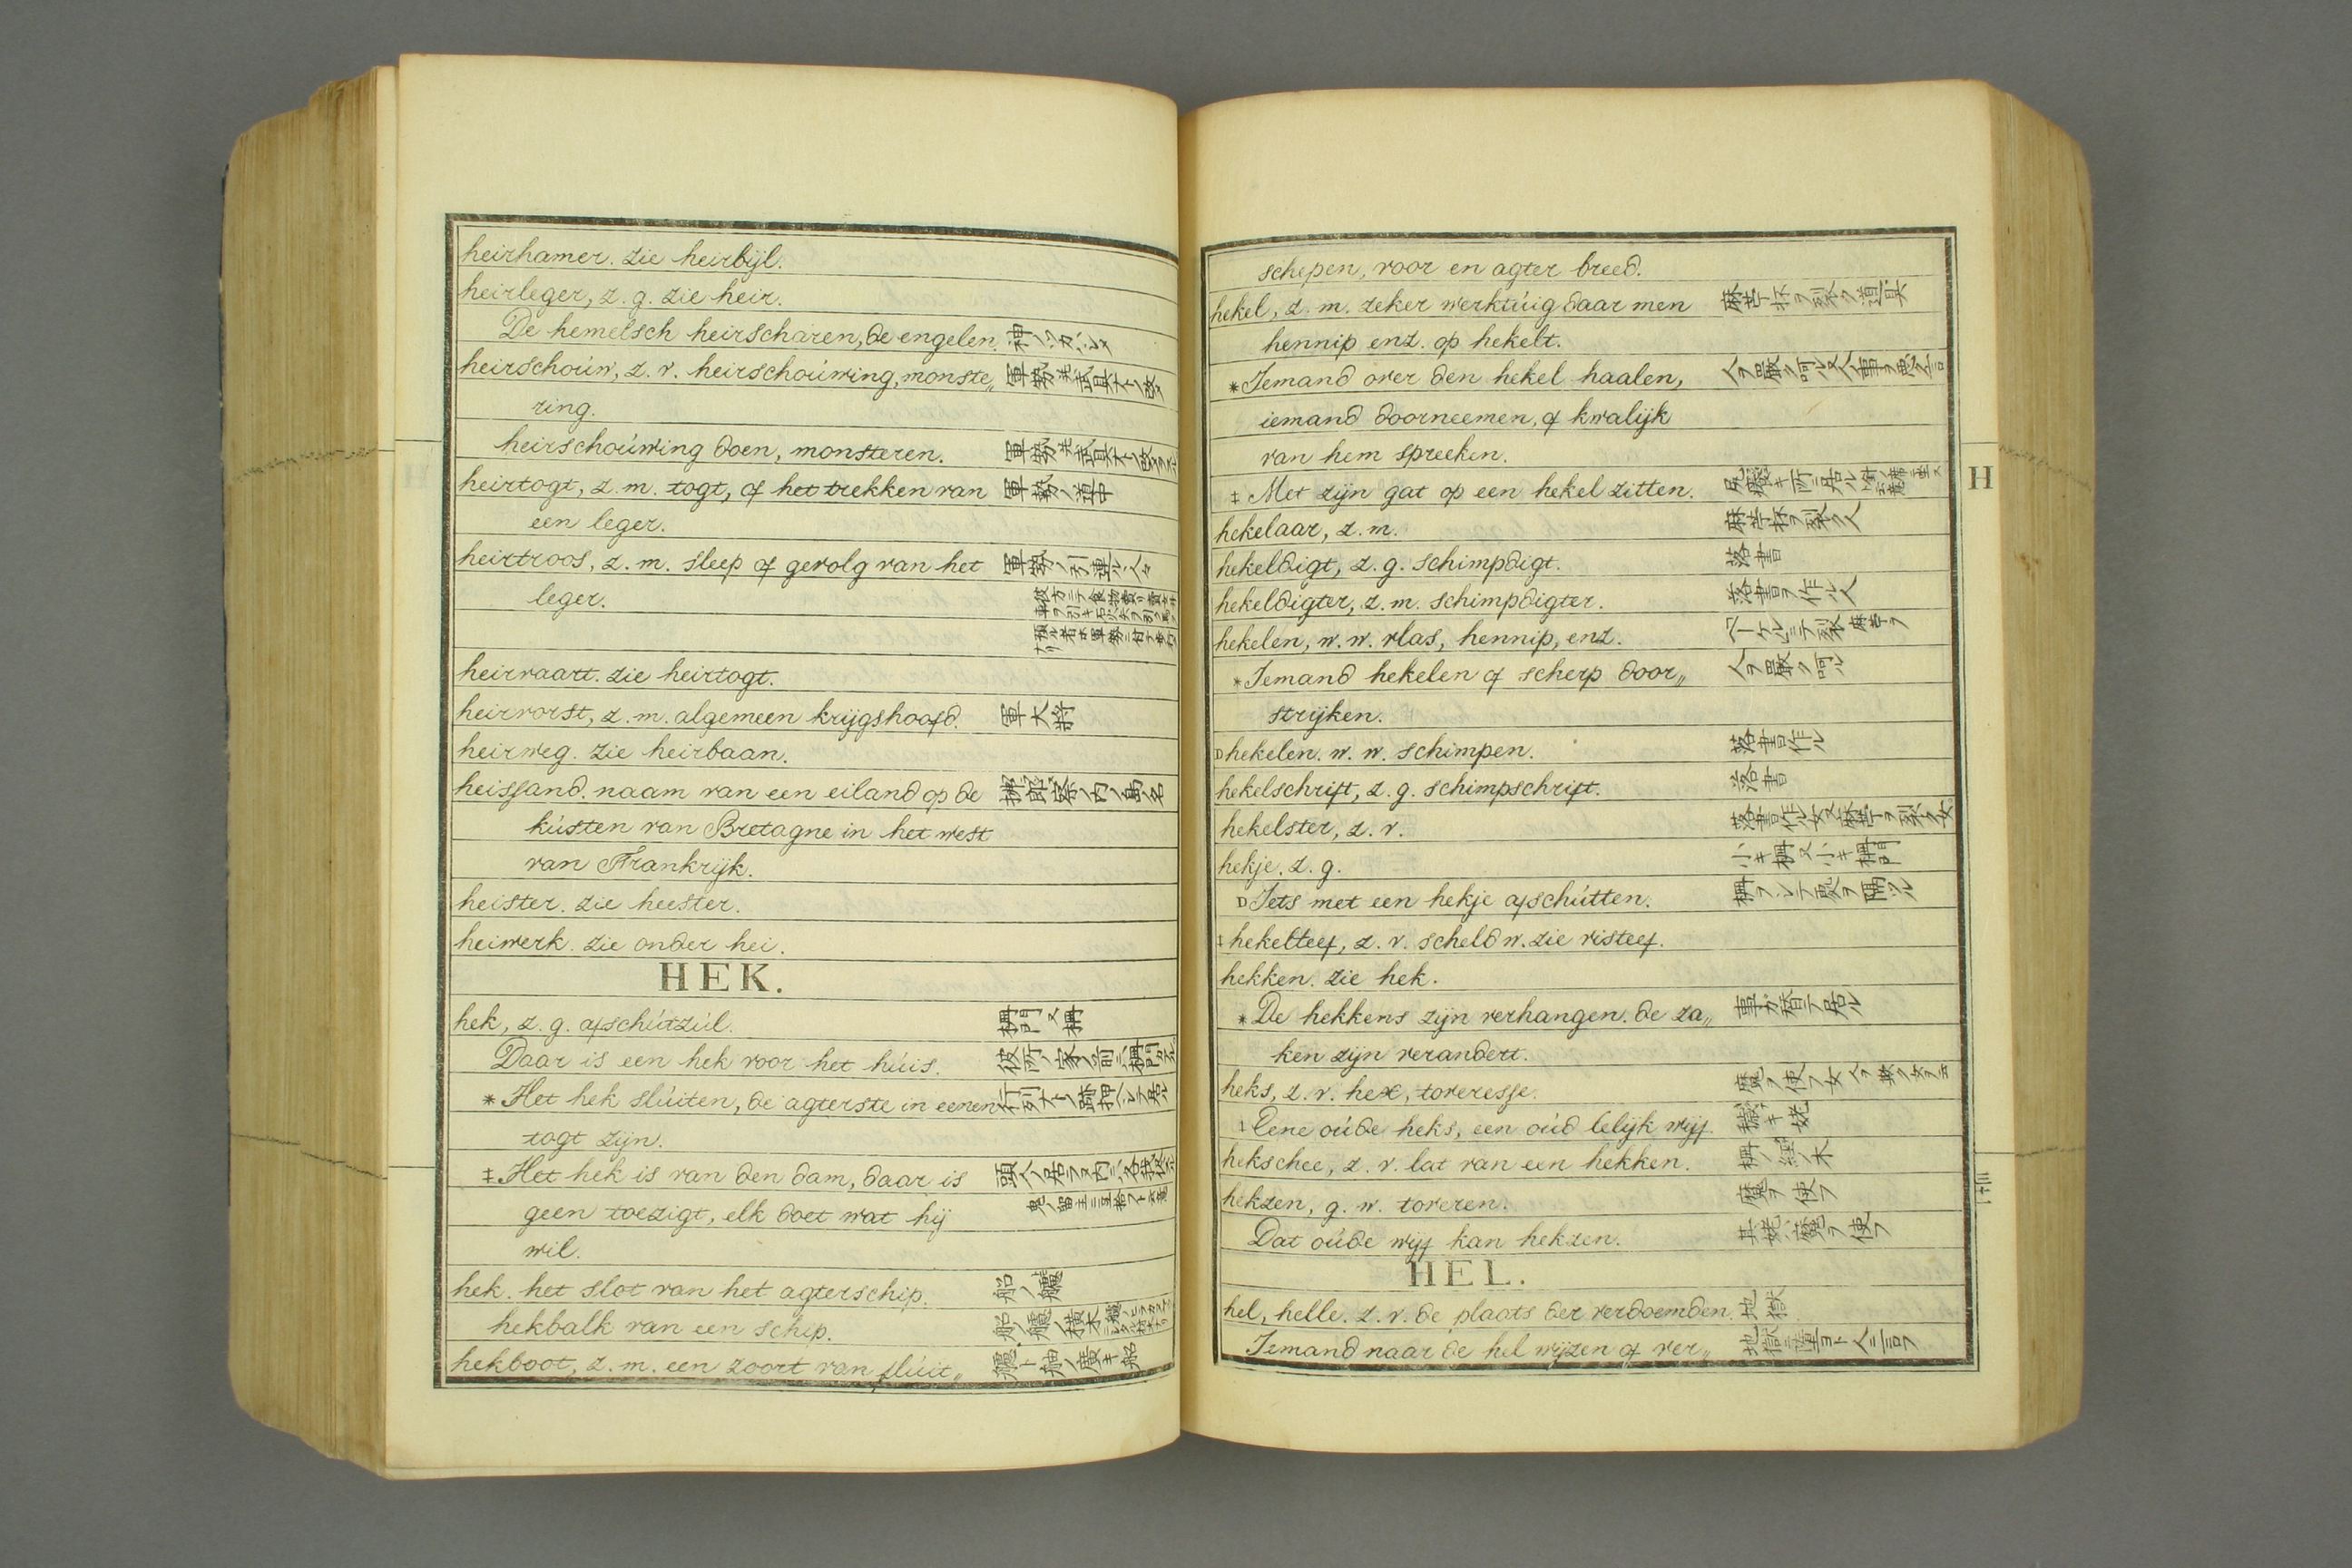 heirhamer. zie heirbijl.
heirleger, z. g. zie heir.
De hemelsch heirscharen, de engelen. 神ノツカハシメ
heirschoúw, z. v. heirschoúwing, monste„
ring.
heirschoúwing doen, monsteren.
heirtogt, z. m. togt, of het trekken van 軍勢ノ道中
een leger.
heirtroos, z. m. sleep of gevolg van het 軍勢ノ引連ル人々
leger.
heirvaart. zie heirtogt.
heirvorst, z. m. algemeen krijgshoofd. 軍大将
heirweg. zie heirbaan.
heissand. naam van een eiland op de 拂郎察ノ内ノ島ノ名
kústen van Bretagne in het west
van Frankrijk.
heister. zie heester.
heiwerk. zie onder hei.
HEK.
hek, z. g. afschútzúl. 柵門又柵
Daar is een hek voor het húis. 彼所ノ家ノ前ニ柵門カアル
* Het hek slúiten, de agterste in eenen
togt zijn.
‡ Het hek is van den dam, daar is
geen toezigt, elk doet wat hij
wil.
hek. het slot van het agterschip. 船ノ艫
hekbalk van een schip. 船ノ艫ノ横木
hekboot, z. m. een zoort van flúit„ 艫ト舳ノ廣キ船
schepen, voor en agter breed.
hekel, z. m. zeker werktúig daar men 麻苧抔ヲ裂ク道具
hennip enz. op hekelt.
* Iemand over den hekel haalen, 人ヲ嚴ク呵ル又人ノ事ヲ悪ク言
iemand doorneemen, of kwalijk
van hem spreeken.
‡ Met zijn gat op een hekel zitten.
hekelaar, z. m. 麻苧抔ヲ裂ク人
hekeldigt, z. g. schimpdigt. 落書
hekeldigter, z. m. schimpdigter. 落書ヲ作ル人
hekelen, w. w. vlas, hennip, enz. ヘーケルニテ裂 麻苧ヲ
* Iemand hekelen of scherp door„ 人ヲ嚴ク呵ル
strijken.
D hekelen. w. w. schimpen. 落書作ル
hekelschrift, z. g. schimpschrift. 落書
hekelster, z. v. 落書作ル女又麻苧ヲ裂ク女
hekje. z. g. 小キ柵又小キ柵門
D Iets met een hekje afschútten. 柵ヲシテ夏ヲ隔ツル
‡ hekelteef, z. v. scheldw. zie visteef.
hekken. zie hek.
* De hekkens zijn verhangen. de za„ 事ガ替テ居ル
ken zijn verandert.
heks, z. v. hex, toveresse. 魔ヲ使フ女
‡ Eene oúde heks, een oúd lelijk wijf. 穢キ姥
hekschee, z. v. lat van een hekken. 柵ノ經ノ木
hekzen, g. w. toveren. 魔ヲ使フ
Dat oúde wijf kan hekzen. 其姥ハ魔ヲ使フ
HEL.
hel, helle. z. v. de plaats der verdoemden. 地獄
Iemand naar de hel wijzen of ver„ 地獄ニ墮ヨト人ニ言フ
H